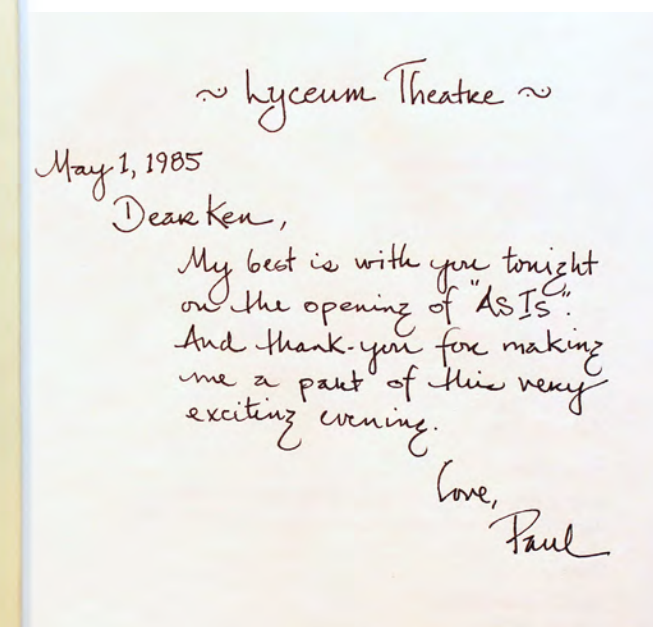 ~ Lyceum Theatre ~
May 1, 1985
Dear Ken,
My best is with you tonight
on the opening of "As Is".
And thank-you for making
me a part of this very
exciting evening.
Love,
Paul